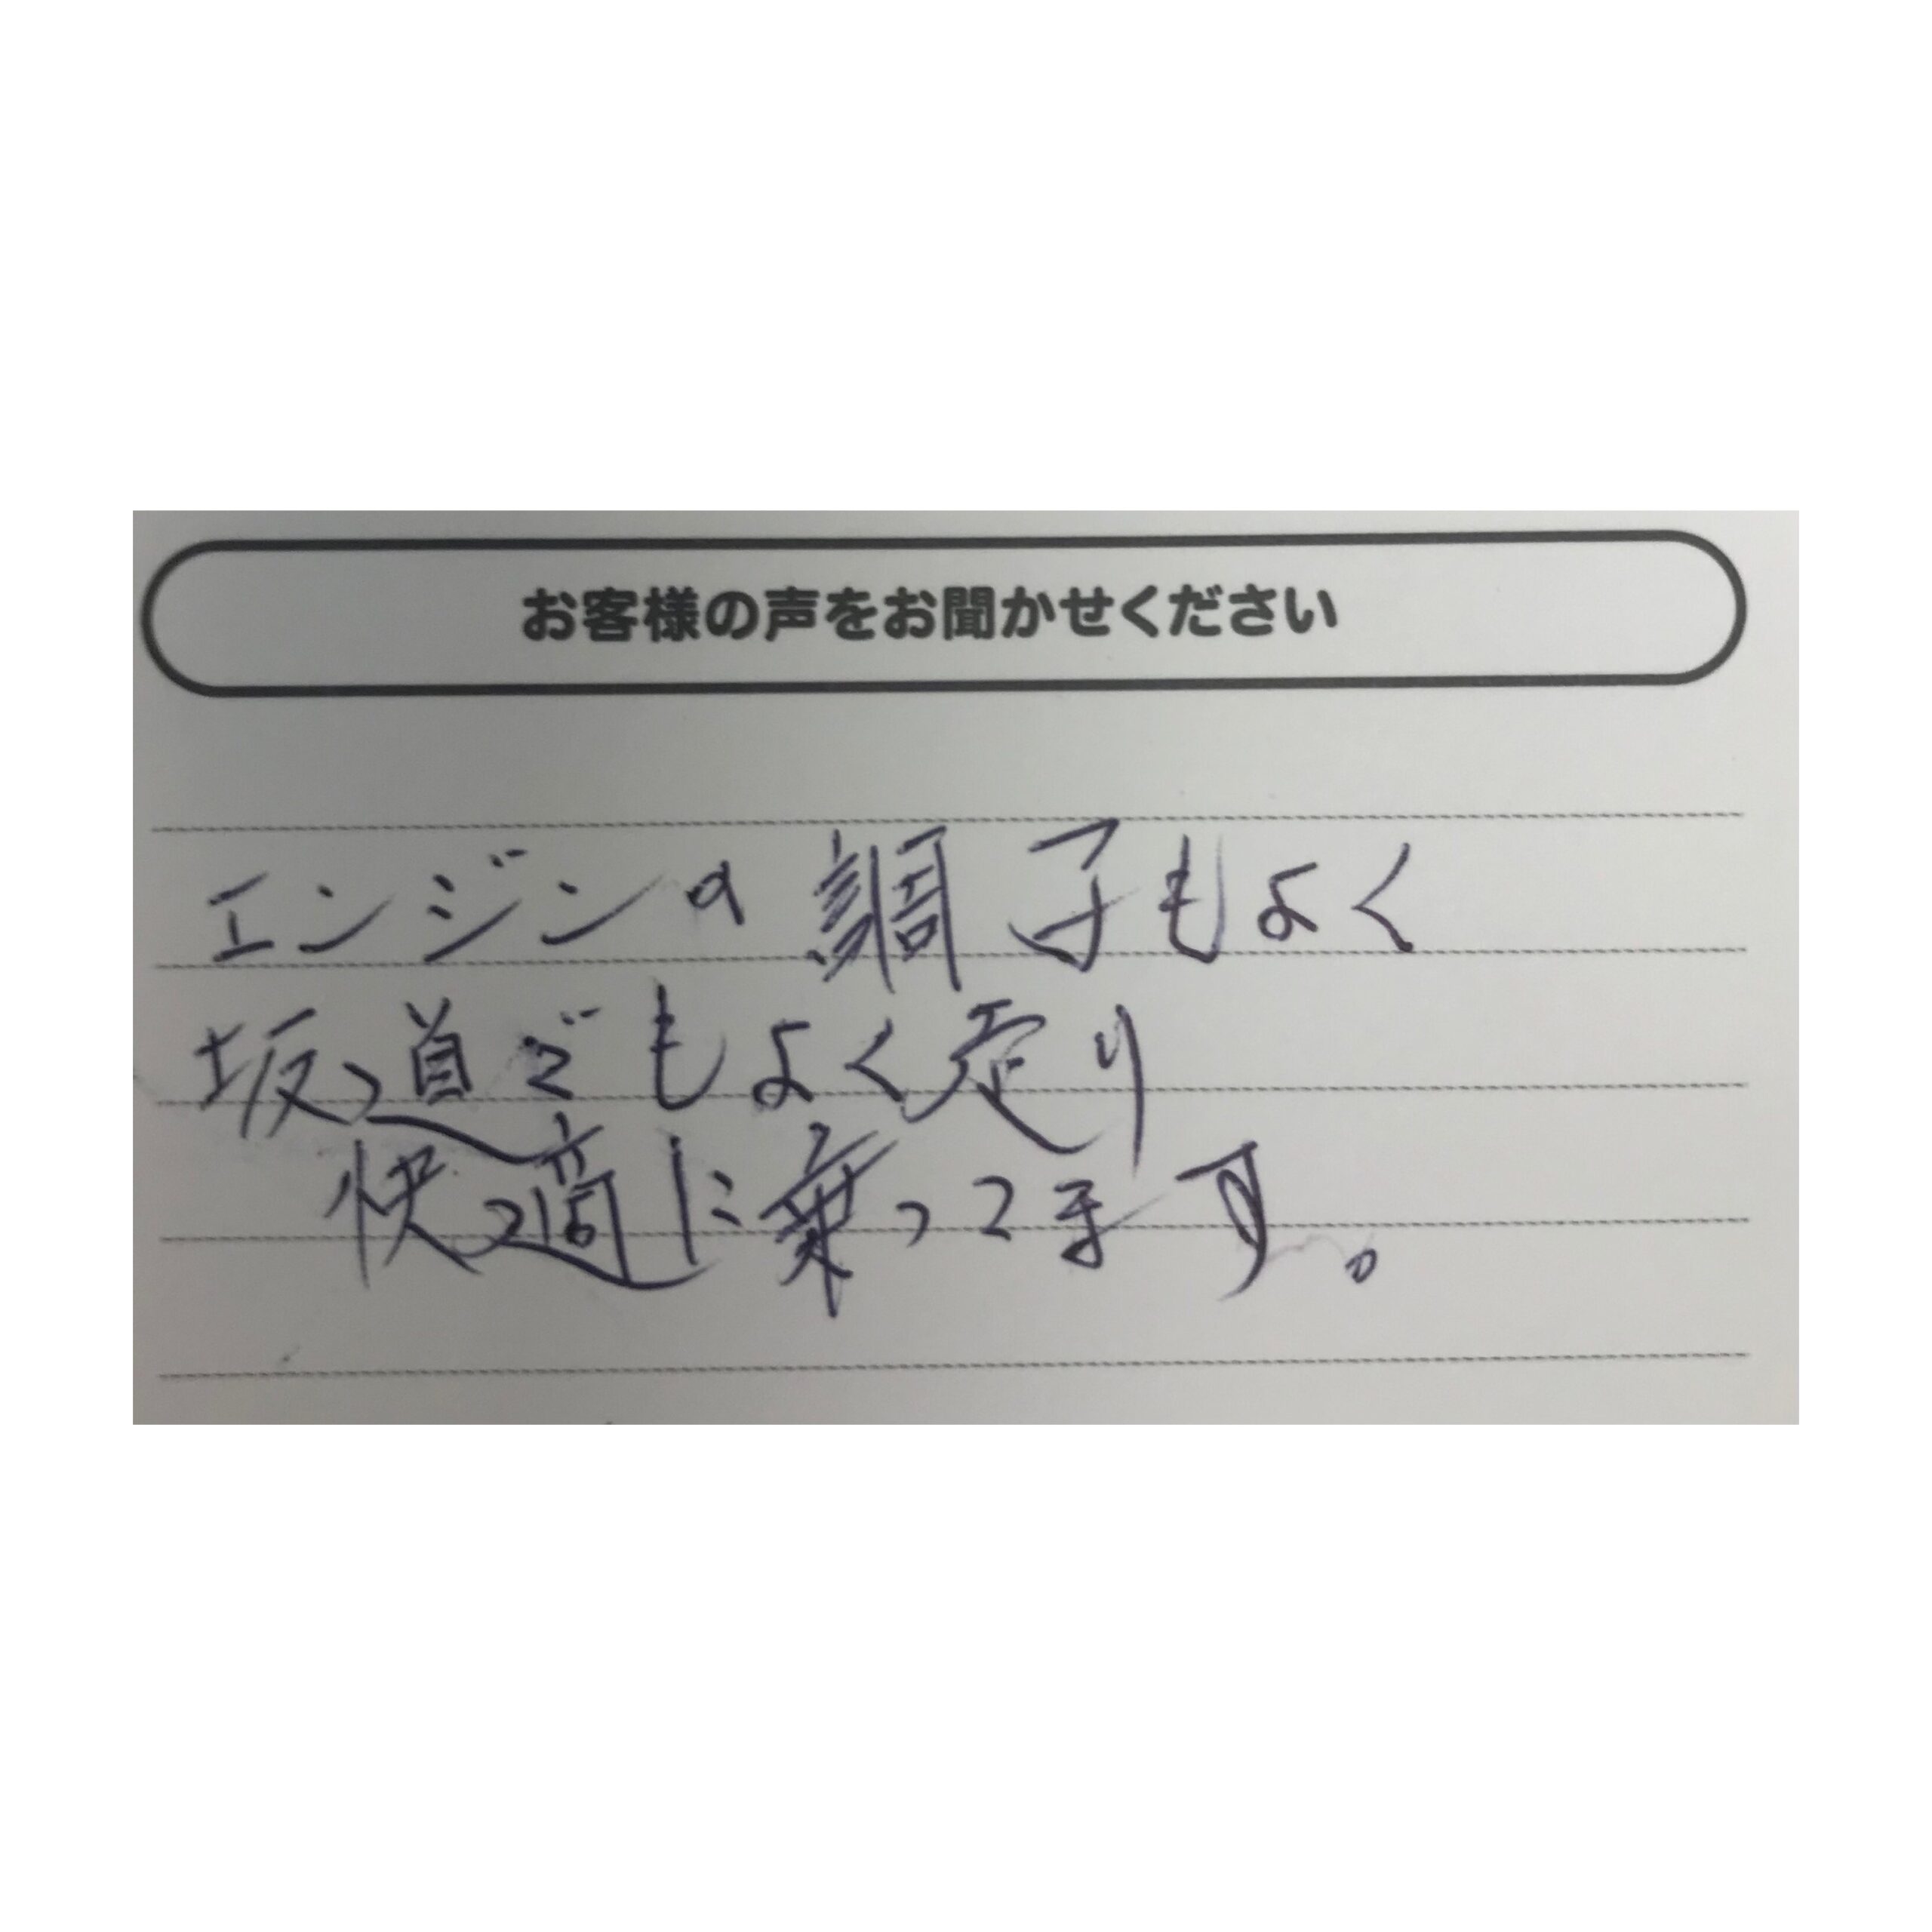 お客様の声をお聞かせください
エンジンの調子もよく
坂道でもよく走り
快適に乗ってます。